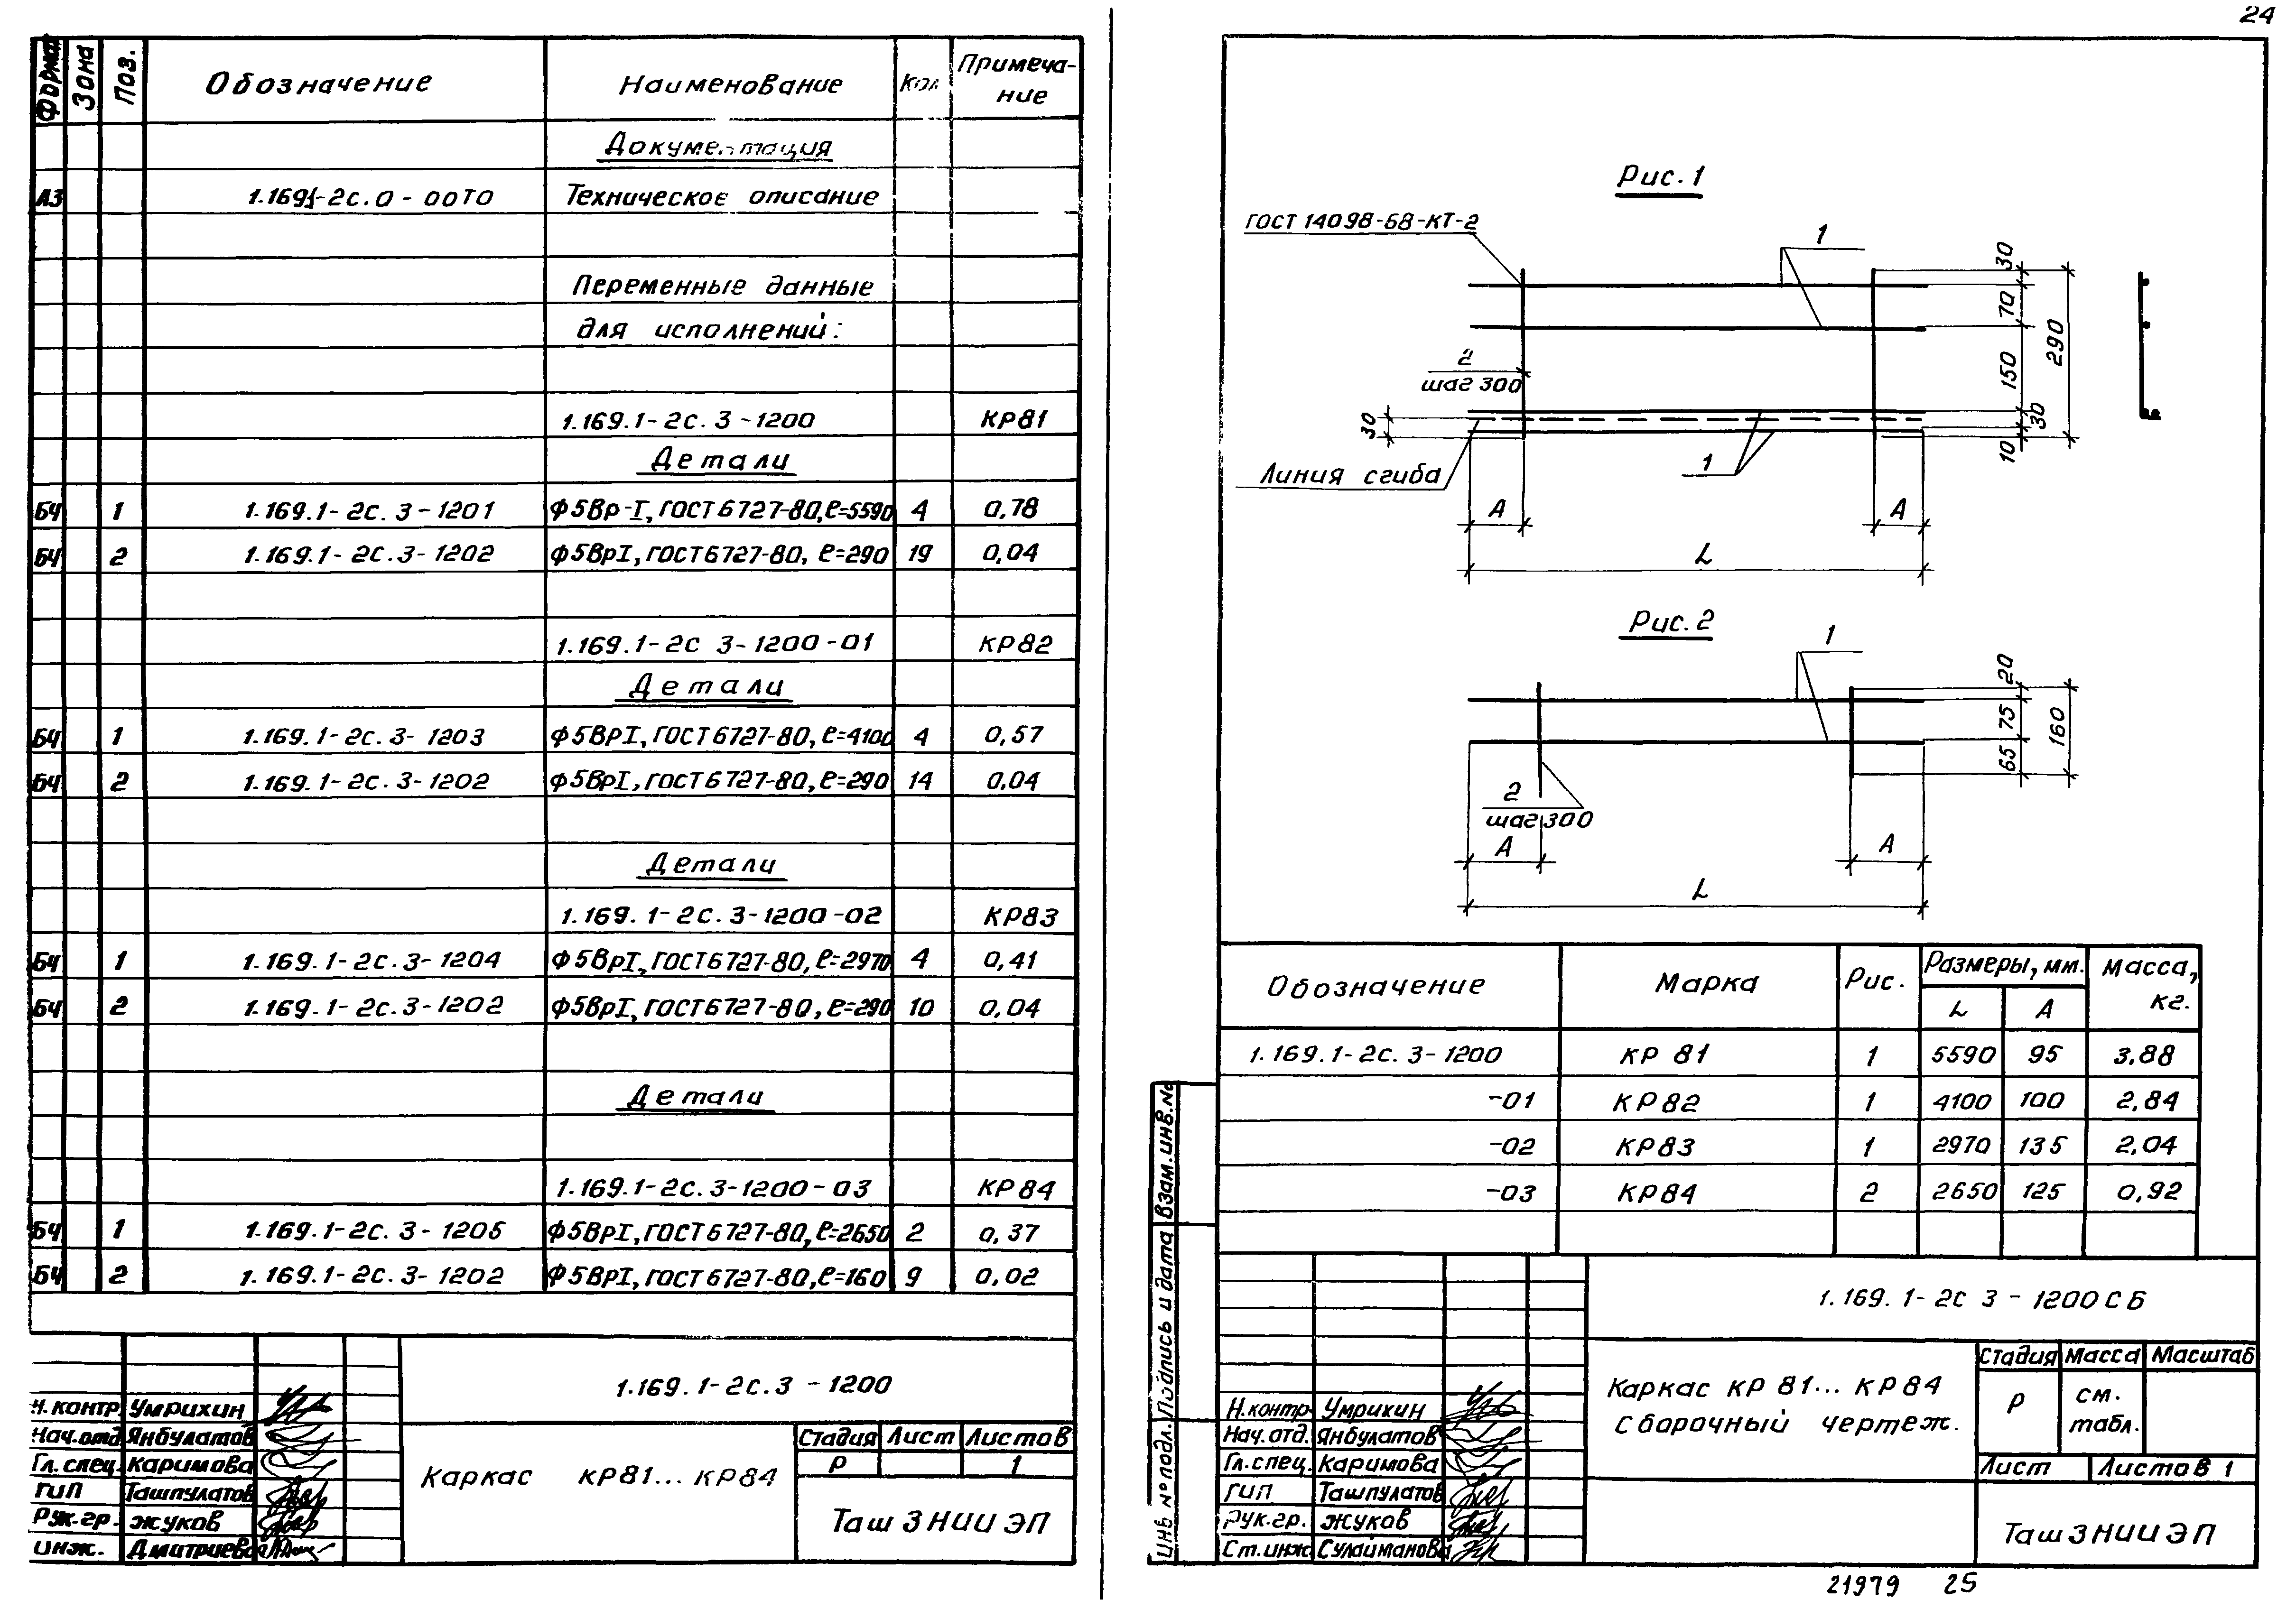 24
Формат Зона Поз. Обозначение Наименование Кол Примеча-
ние
Документация
А3 1.169.1-2с.0-00ТО Техническое описание
Переменные данные
для исполнений:
1.169.1-2с.3-1200 КР81
Детали
БЧ 1 1.169.1-2с.3-1201 Ф5Вр-I, ГОСТ 6727-80, ℓ=5590 4 0,78
БЧ 2 1.169.1-2с.3-1202 Ф5ВрI, ГОСТ 6727-80, ℓ=290 19 0,04
1.169.1-2с 3-1200-01 КР82
Детали
БЧ 1 1.169.1-2с.3-1203 Ф5ВрI, ГОСТ 6727-80, ℓ=4100 4 0,57
БЧ 2 1.169.1-2с.3-1202 Ф5ВрI, ГОСТ 6727-80, ℓ=290 14 0,04
Детали
1.169.1-2с.3-1200-02 КР83
БЧ 1 1.169.1-2с.3-1204 Ф5ВрI, ГОСТ 6727-80, ℓ=2970 4 0,41
БЧ 2 1.169.1-2с.3-1202 Ф5ВрI, ГОСТ 6727-80, ℓ=290 10 0,04
Детали
1.169.1-2с.3-1200-03 КР84
БЧ 1 1.169.1-2с.3-1205 Ф5ВрI, ГОСТ 6727-80, ℓ=2650 2 0,37
БЧ 2 1.169.1-2с.3-1202 Ф5ВрI, ГОСТ 6727-80, ℓ=160 9 0,02
1.169.1-2с.3-1200
Н.контр Умрихин
Нач.отд Янбулатов
Гл.спец. Каримова
ГИП Ташпулатов
Рук.гр. Жуков
инж. Дмитриева
Каркас КР81...КР84
Стадия Лист Листов
Р 1
ТашЗНИИЭП
Рис.1
ГОСТ 14098-68-КТ-2
1
2
шаг 300
30
Линия сгиба
1
30
70
150
30
10
290
А
А
L
Рис.2
1
2
шаг 300
20
75
65
160
А
А
L
Обозначение Марка Рис. Размеры, мм. Масса,
кг.
L А
1.169.1-2с.3-1200 КР 81 1 5590 95 3,88
-01 КР82 1 4100 100 2,84
-02 КР83 1 2970 135 2,04
-03 КР84 2 2650 125 0,92
Взам.инв.№
Подпись и дата
Инв № подл.
1.169.1-2с 3-1200СБ
Н.контр Умрихин
Нач.отд. Янбулатов
Гл.спец. Каримова
ГИП Ташпулатов
Рук.гр. Жуков
Ст.инж Сулайманова
Каркас КР 81... КР84
Сборочный чертеж.
Стадия Масса Масштаб
Р см.
табл.
Лист Листов 1
ТашЗНИИЭП
21979 25